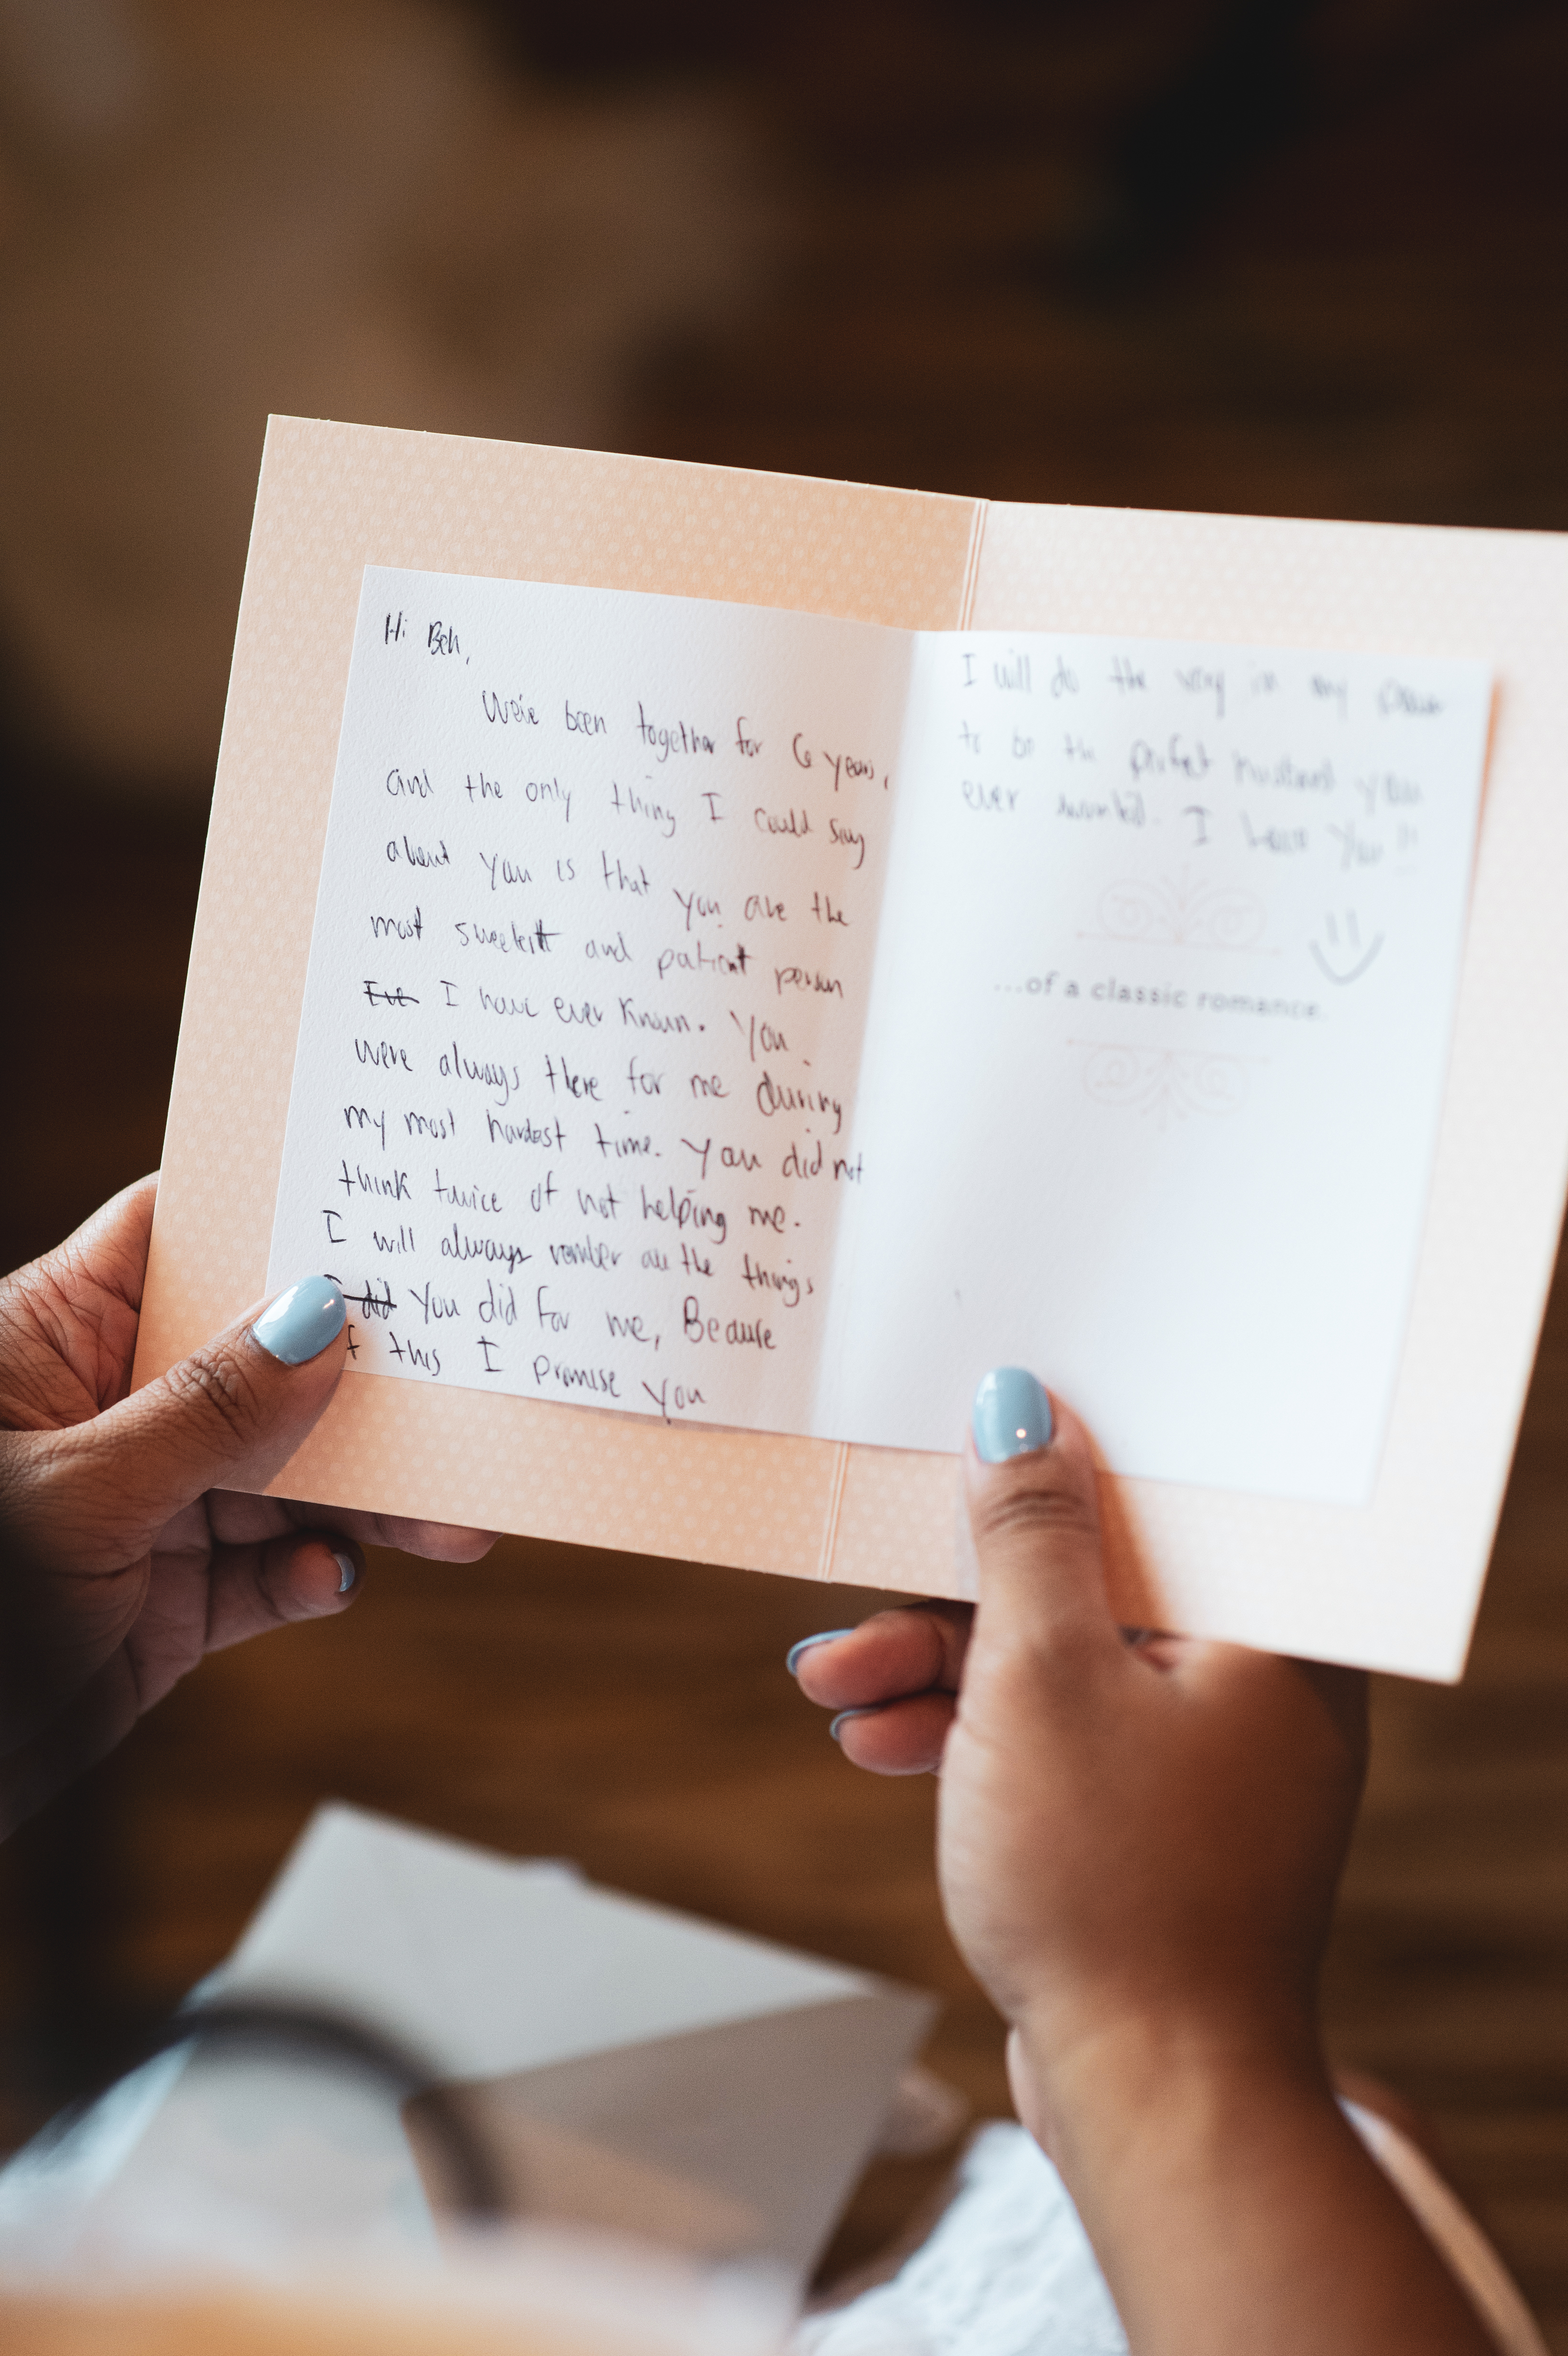 Hi Beh,
We've been together for 6 years,
and the only thing I could say
about you is that you are the
most sweetest and patient person
I have ever known. You
were always there for me during
my most hardest time. You did not
think twice of not helping me.
I will always rember all the things
I did You did for me, Because
of this I promise you
I will do the very in my power
to be the perfect husband you
ever wanted. I Love You !!
...of a classic romance.